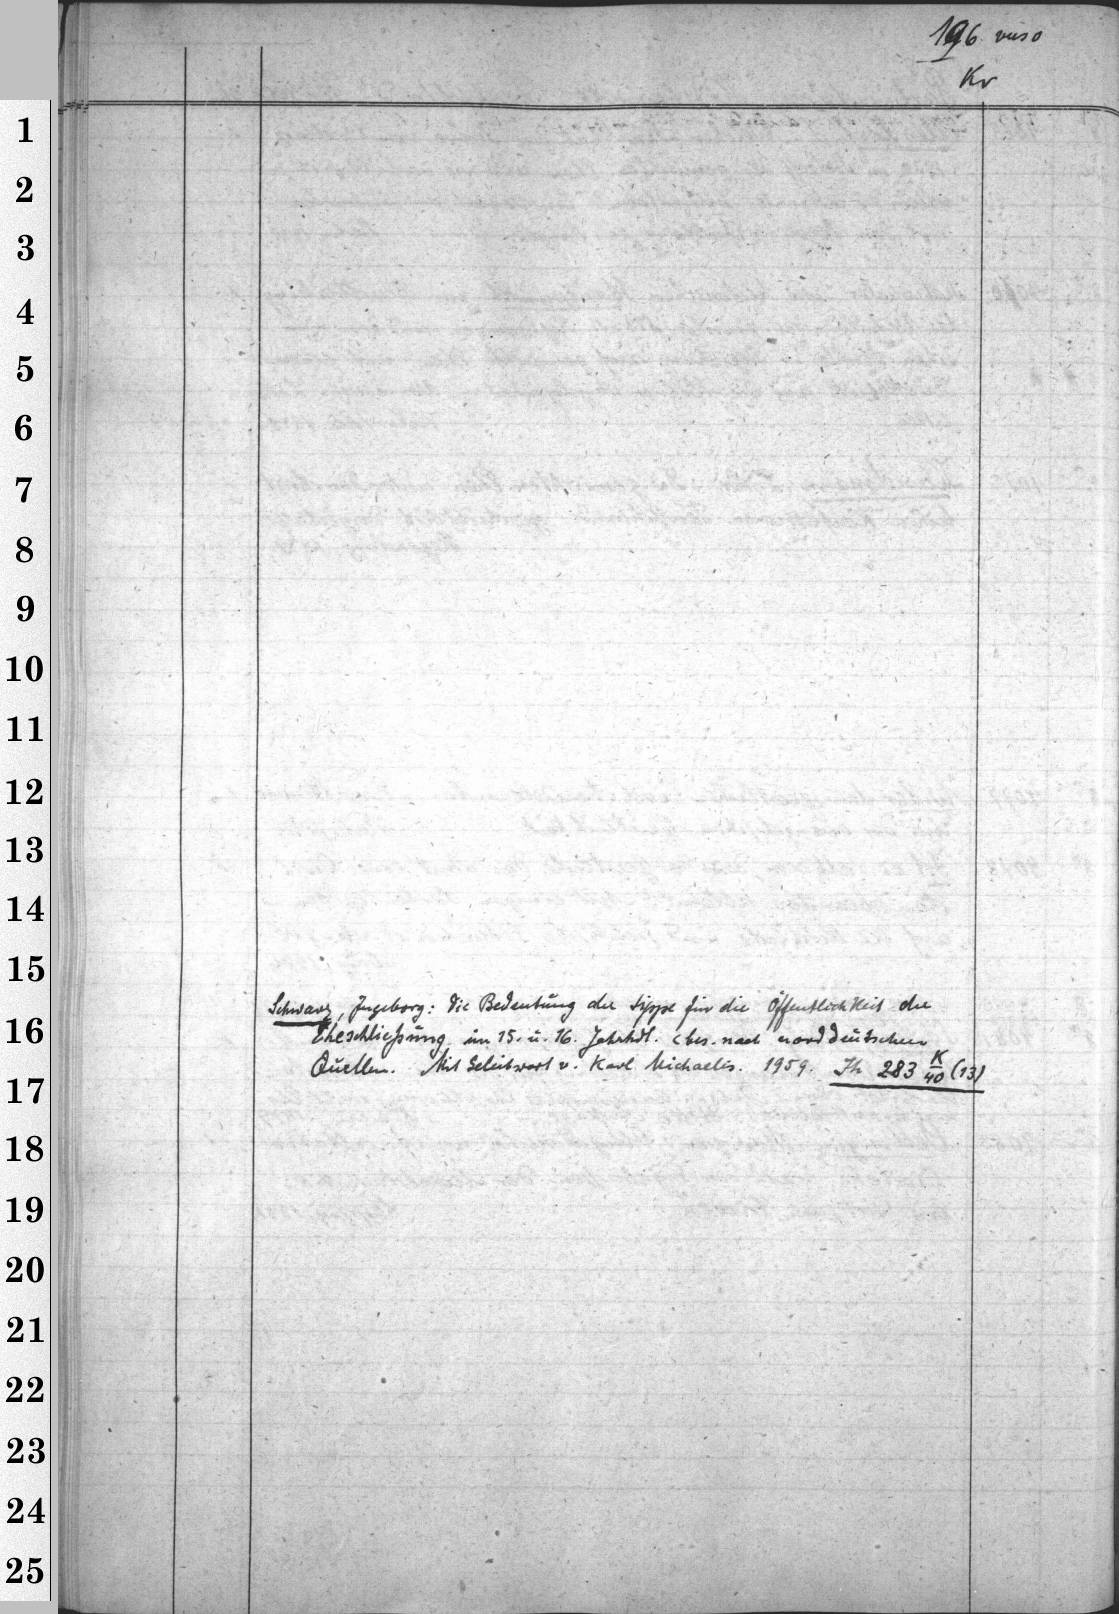 196 verso
Kv
1
2
3
4
5
6
7
8
9
10
11
12
13
14
15
Schwarz, Ingeborg: Die Bedeutung der Sippe für die Öffentlichkeit der
16
Eheschließung im 15. u. 16. Jahrhdt. (bes. nach norddeutschen
Quellen. Mit Geleitwort v. Karl Michaelis. 1959. Jh 283 K/40 (13)
17
18
19
20
21
22
23
24
25